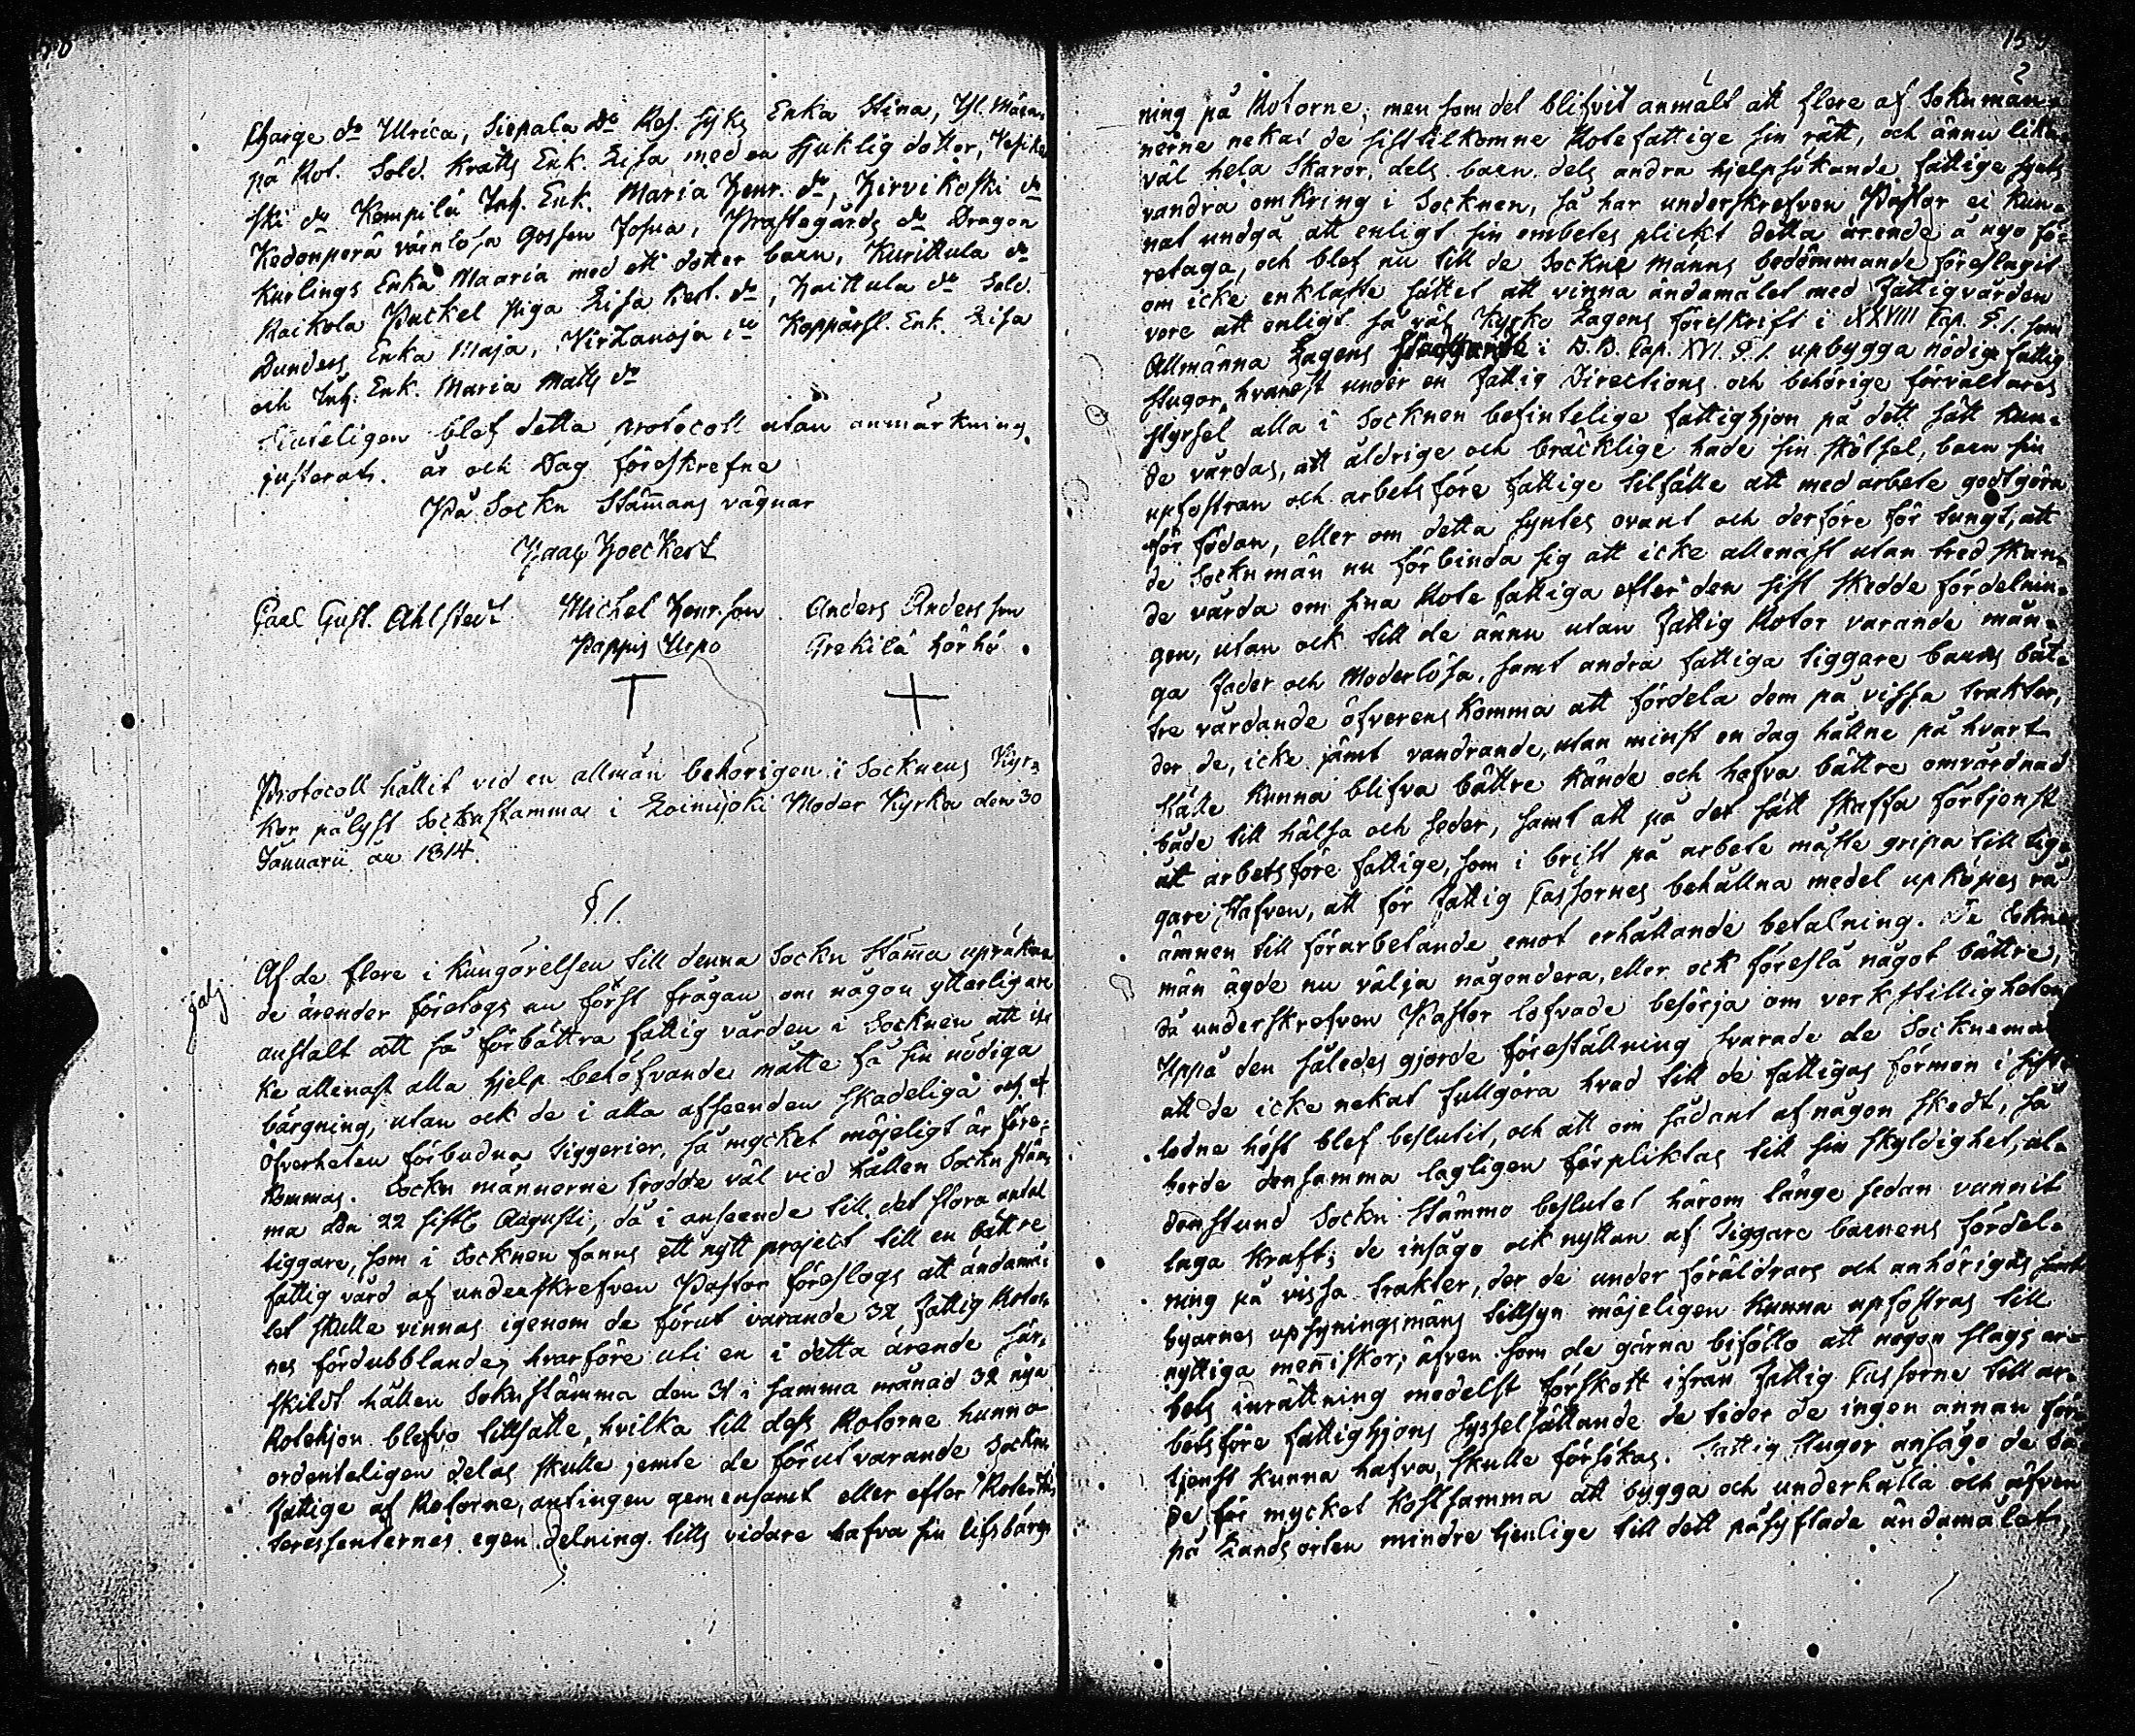 Charge do Ulrica, Siepala do Res. Syks Enka Stina, Yl. Mäen
på Rot. Sold. Kratts Enk. Lisa med en sjuklig dotter, Vesikos
ski do Kempilä Inh. Enk. Maria Henr. do, Hirvikoski do
Kedonperä värnlösa Gossen Josua, Prestegårds do Dragon
Kurlings Enka Maaria med ett dotter barn, Kurittula do
Raikola Puckel Piga Lisa Kest. do, Haittula do Sold.
Dunders Enka Maja, Virtanoja do Kopparsl. Enk. Lisa
och Inh. Enk. Maria Matts do
Sluteligen blef detta protocoll utan anmärkning
justerat. år och Dag föreskrefne
På Sockn Stämans vägnar
Isaac Hoeckert
Carl Gust. Ahlstedt Michel Henr.son Anders Andersson
Pappis Uspo Grekilä Hörhö.
Protocoll hållit vid en allmän behörigen i Socknens Kyr-
kor pålyst Socknstämma i Loimijoki Moder Kyrka den 30
Januarii år 1814.
§ 1.
Af de flere i kungörelsen till denna Sockn Stäma upräkna
de ärender företogs nu först frågan om någon ytterligare
anstalt att så förbättra fattig vården i Socknen att ic
ke allenast alla hjelp behöfvande måtte få sin nödiga
bärgning, utan ock de i alla afseenden skadeliga och af
Öfverheten förbudna Tiggerier, så mycket möjeligt är före-
kommas. Sockn männerne trodde väl vid hållen Sockn stäm-
ma den 22 sistl. Augusti, då i anseende till det stora antal
tiggare, som i Socknen fanns ett nytt project till en bättre
fattig vård af underskrefven Pastor föreslogs att ändamå-
let skulle vinnas igenom de förut varande 32 fattig Roter-
nes fördubblande, hvarföre uti en i detta ärende sär-
skildt hållen Soknstämma den 31 i samma månad 32 nya
Rotehjon blefvo tillsatte, hvilka till dess Roterne hunno
ordenteligen delas skulle jemte de förut varande Sockn
fattige af Roterne, antingen gemensamt eller efter Rote In-
teressenternes egen delning tills vidare hafva sin lifsbärg-
ning på Roterne; men som det blifvit anmält att flere af Sokn män-
nerne neka de sist tilkomne Rotefattige sin rätt, och ännu lika
väl hela skaror, dels barn dels andra hjelpsökande fattige syns
vandra omkring i Socknen, så har underskrefven Pastor ei kun-
nat undgå att enligt sin embetes plickt detta ärende å nyo fö-
retaga, och blef nu till de Sockne Männs bedömmande föreslagit
om icke enklaste sättet att vinna ändamålet med Fattigvården
vore att enligt så väl Kyrko Lagens föreskrift i XXVIII Cap. §. 1. som
Allmänna Lagens i B. B. Cap. XVI. § 1. upbygga nödige fattig
stugor, hvarest under en Fattig Directions och behörige förvaltares
styrsel alla i Socknen befintelige fattighjon på dett sätt kun-
de vårdas, att åldrige och bräcklige hade sin skötsel, barn sin
upfostran och arbetsföre fattige tilfälle att med arbete godtgöra
för födan, eller om detta syntes ovant och derföre för tungt, att
de Socknmän nu förbinda sig att icke allenast utan tredskan-
de vårda om sina Rote fattiga efter den sist skedde fördelnin-
gen, utan ock till de ännu utan Fattig Rotor varande mån-
ga Fader och Moderlösa, samt andra fattiga tiggare barns bät-
tre vårdande öfverenskomma att fördela dem på vissa trakter,
der de, icke jämt vandrande, utan minst en dag hållne på hvart
ställe kunna blifva bättre kände och hafva bättre omvårdnad
både till hälsa och seder, samt att på det sätt skaffa förtjenst
åt arbetsföre fattige, som i brist på arbete måste gripa till tig-
gare stafven, att för Fattig Cassornes behållna medel upköpes rå
ämnen till förarbetande emot erhållande betalning. De Sokne
män ägde nu välja någondera, eller ock föreslå något bättre,
då underskrefven Pastor lofvade besörja om verkställigheten
Uppå den således gjorde föreställning svarade de Socknemän
att de icke nekat fullgöra hvad till de fattigas förmon i sist
ledne höst blef beslutit, och att om sådant af någon skedt, så
borde densamma lagligen förpliktas till sin skyldighet, al-
denstund Sockn Stämmo beslutet härom länge sedan vunnit
laga kraft; de insågo ock nyttan af Tiggare barnens fördel-
ning på vissa trakter, der de under föräldrars och anhörigas samt
byarnes upsyningsmäns tillsyn möjeligen kunna upfostras till
nyttiga meñiskor; äfven som de gärna biföllo att någon slags ar-
bets inrättning medelst förskott ifrån Fattig Cassorne till ar-
betsföre fattighjons sysselsättande de tider de ingen annan för-
tjenst kunna hafva, skulle försökas. Fattig stugor ansågo de då
de för mycket kostsamma att bygga och underhålla och äfven
på Landsorten mindre tjenlige till dett påsyftade ändamålet,